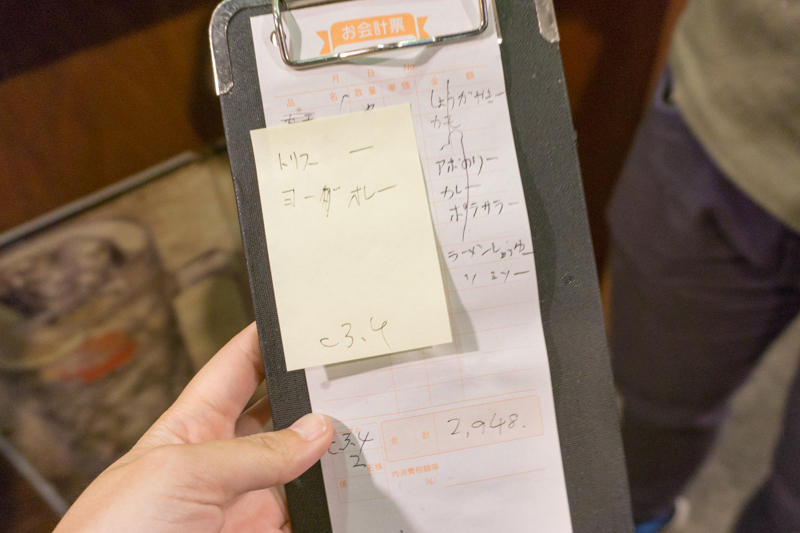 お会計票
月 日 No.
品 名 数量 単価 金 額
しょうがやきー
カモ
トリフー ー
ヨーダ オレー
アボのリー
カレー
ポテサラー
ラーメンしょうゆー
〃 ミソー
c3.4
c3.4
2 名様
合 計 2,948.
係
内消費税額等
%